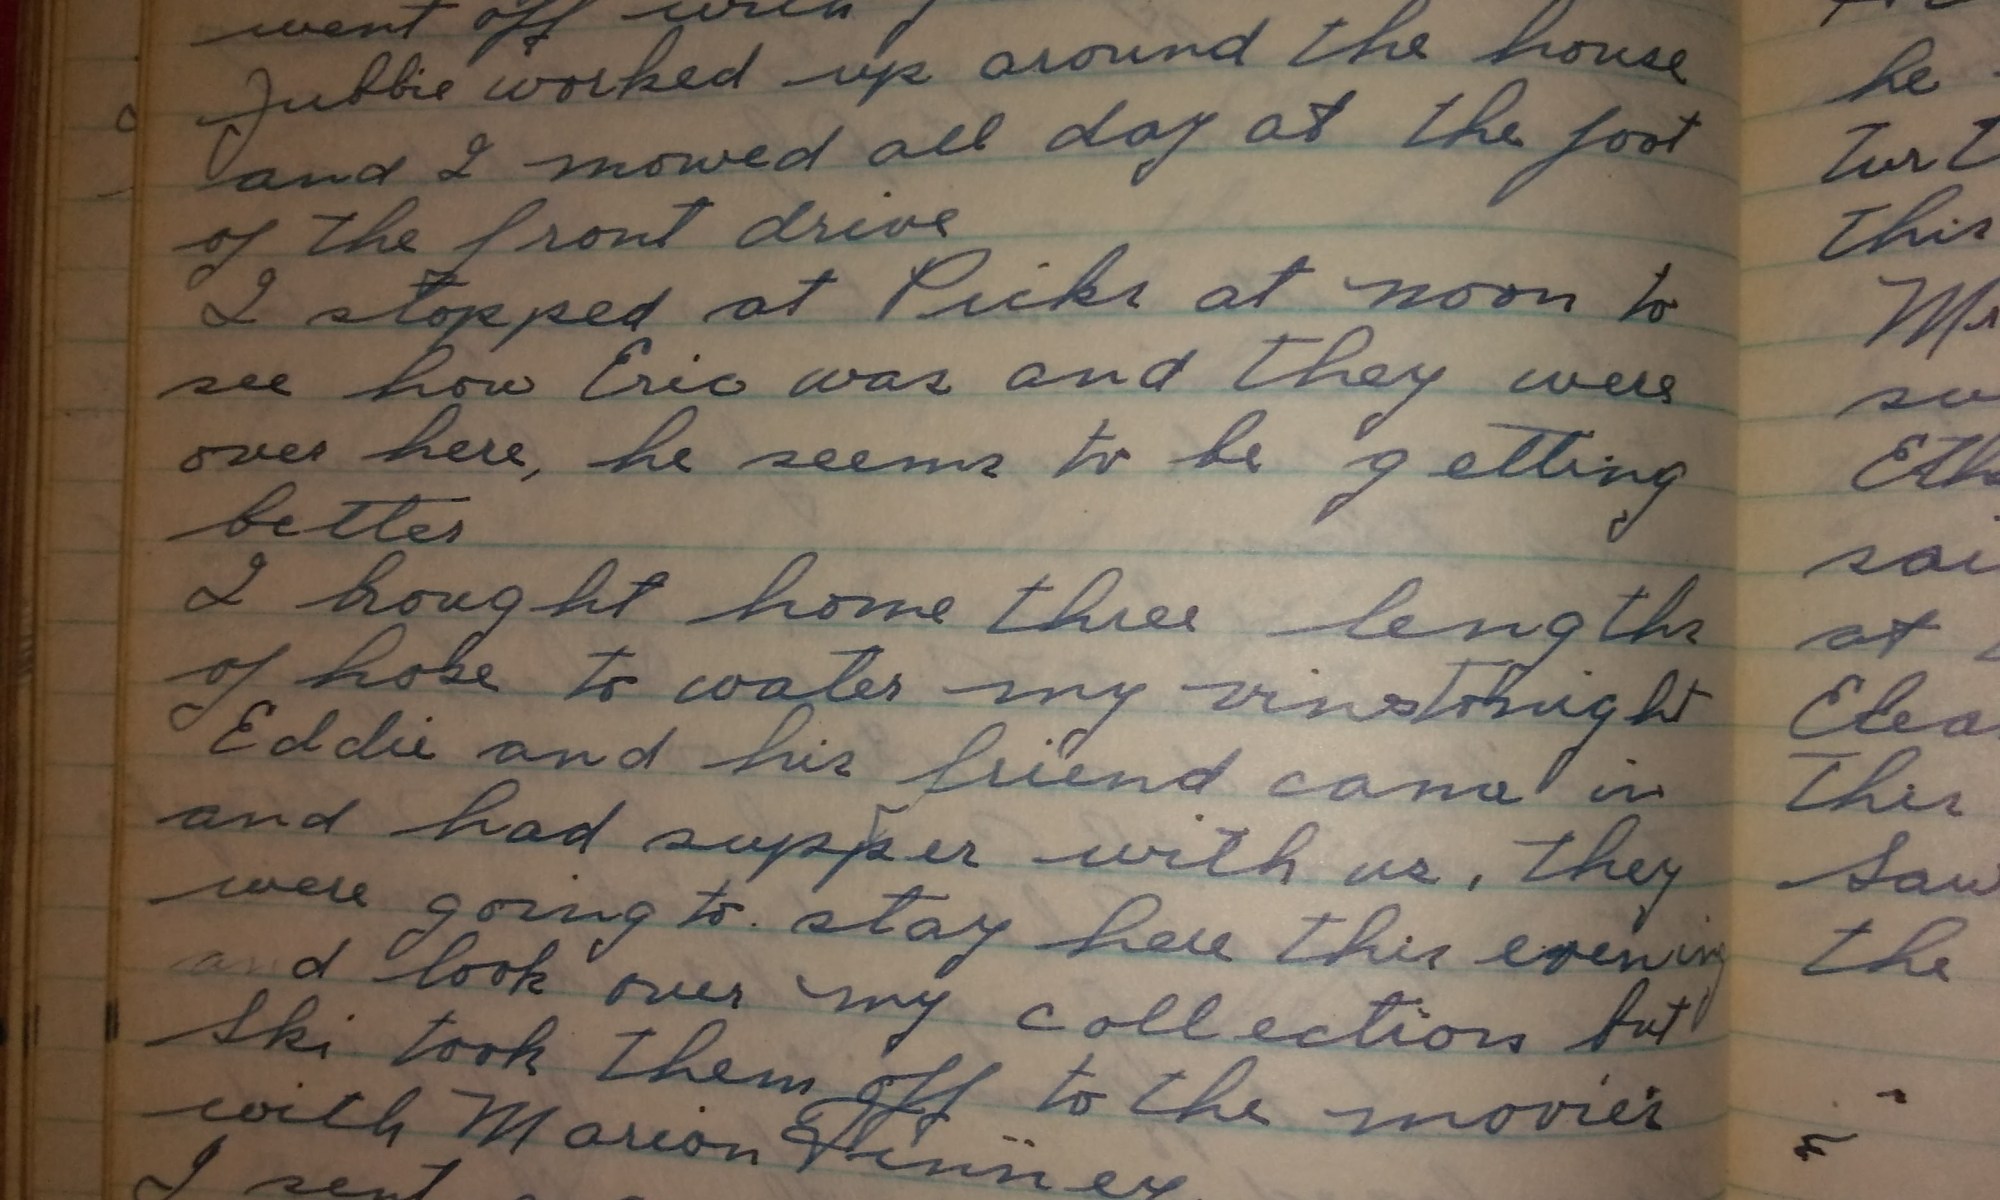 went off with
Jubbie worked up around the house
and I mowed all day at the foot
of the front drive
I stopped at Picks at noon to
see how Eric was and they were
over here, he seems to be getting
better
I brought home three lengths
of hose to water my vines tonight
Eddie and his friend came in
and had supper with us, they
were going to stay here this evening
and look over my collection but
Ski took them off to the movies
with Marion Finney.
I sent
he
this
Mr
Eth
sai
at
Elea
This
Saw
the